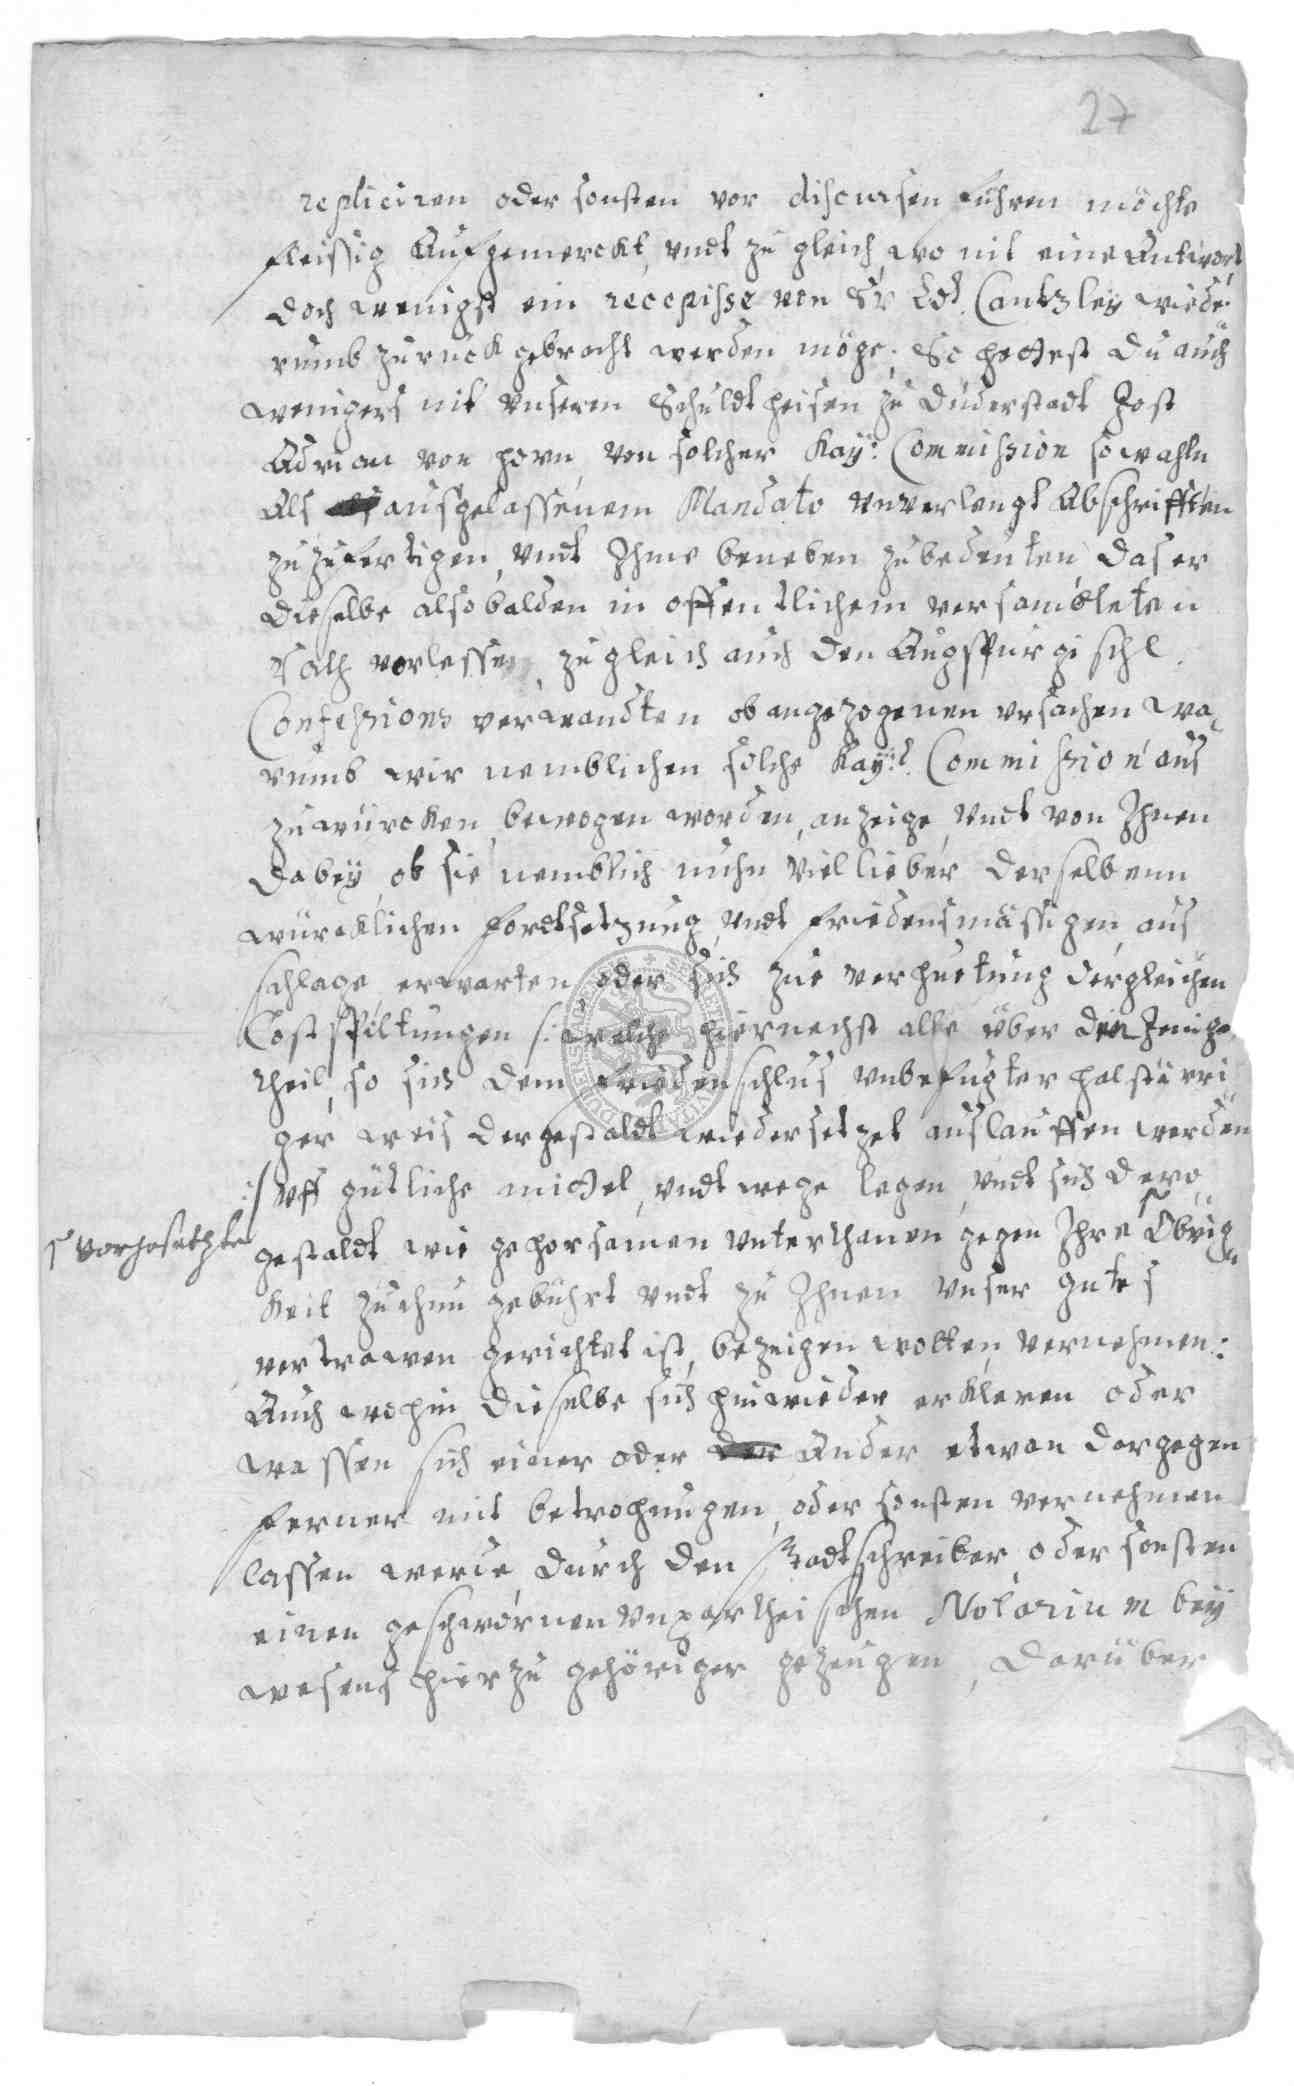 27
repliciren oder sonsten vor discursen führen möchte
fleissig Aufgemerckt, undt zu gleich, wo nit eine Antwort
doch wenigst ein recepisse von Sr Ld. Cantzley wiede
rumb zuruck gebracht werden möge. So hettest Du auch
wenigers nit unserm Schuldtheisen zu Duderstadt Jost
Adrian von Horn von solcher Kay: Commission sowahln
Als ausgelassenem Mandato unverlengt Abschrifften
zuzufertigen, undt Ihme beneben zubedeuten das er
dieselbe alsobalden in offentlichem versambleten
Rath verlessen, zugleich auch den Augspurgischl
Confessions verwandten obangezogenen ursachen wa
rumb wir nemblichen solche Kayl. Commission aus
zuwürcken bewogen worden, anzeige undt von Ihnen
dabey ob sie nemblich nuhn viel lieber derselbenn
würcklichen fordtsetzung undt friedensmässigen aus
schlage erwarten oder sich zue verhuetung dergleichen
Costspiltungen /: welche hiernechst alle über den Jenige
theil, so sich dem friedenschlus unbefugter halstarri
ger weis dergestaldt wiedersetzet auslauffen werden
:/ uff gütliche mittel, undt wege legen undt sich dero
vorgesetzte
gestaldt wie gehorsamen unterthanen gegen Ihre Obrig
keit zuthun gebührt undt zu Ihnen unser gutes
vertrawen gerichtet ist, bezeigen wolten vernehmen:
Auch wohin dieselbe sich hinwieder erkleren oder
wassen sich einer oder der Ander etwan dargegen
ferner mit betrohungen, oder sonsten vernehmen
lassen werde, durch den Stadtschreiber oder sonsten
einen geschwornen unpartheischen Notarium bey
wesens hierzu gehöriger gezeugen, darüber